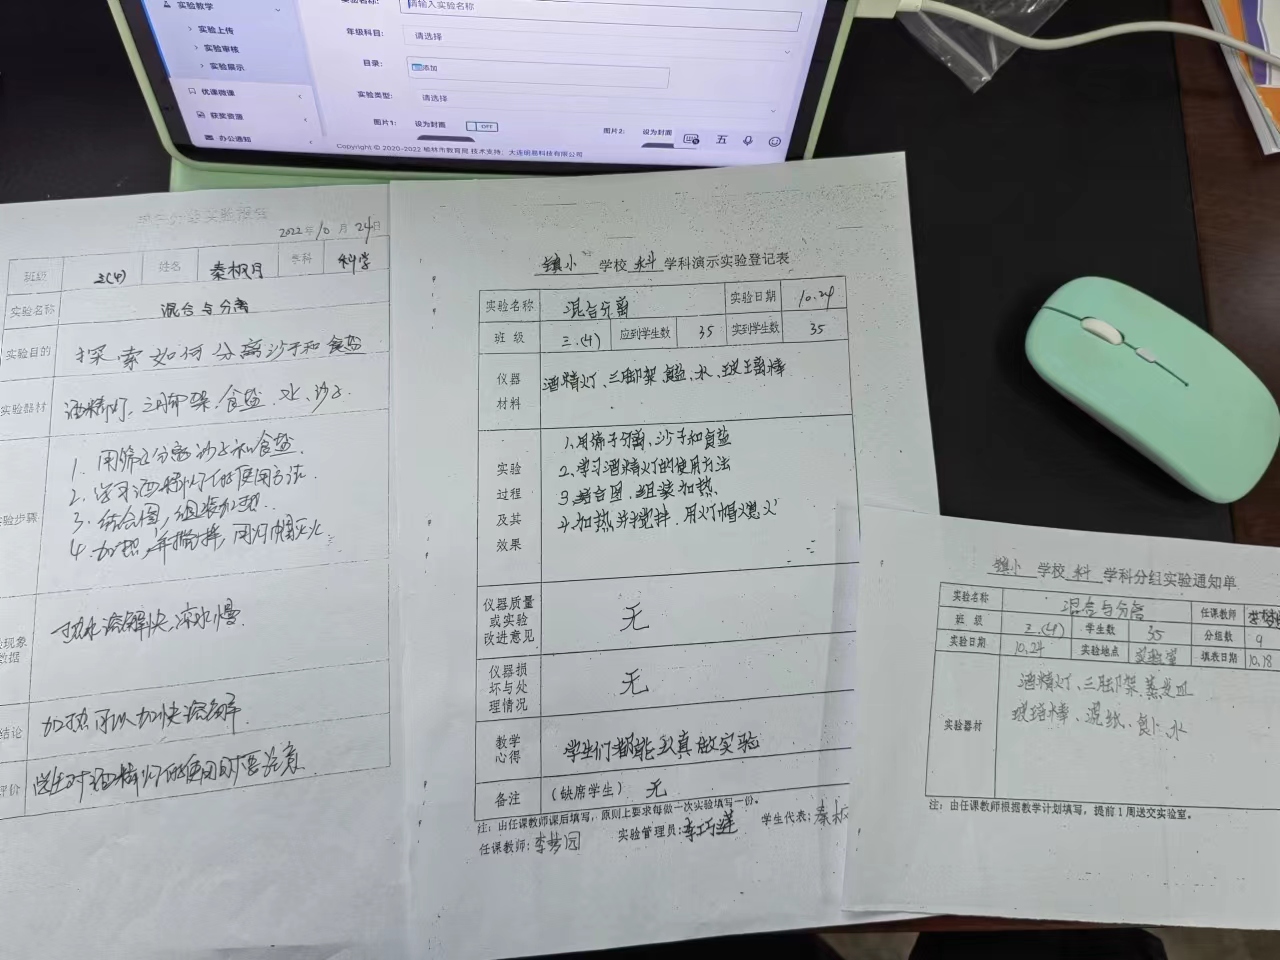 实验教学
实验上传
实验审核
实验展示
优课微课
获奖资源
办公通知
实验名称:
请输入实验名称
年级科目:
请选择
目录:
添加
实验类型:
请选择
图片1:
设为封面
OFF
图片2:
设为封面
五
Copyright © 2020-2022 榆林市教育局 技术支持: 大连明易科技有限公司
2022年10月24日
班级 三(4) 姓名 秦枳月 学科 科学
实验名称 混合与分离
实验目的 探索如何分离沙子和食盐
实验器材 酒精灯、三脚架、食盐、水、沙子
实验步骤
1. 用筛子分离沙子和食盐.
2. 学习酒精灯的使用方法.
3. 结合图,组装加热.
4. 加热,并搅拌,用灯帽灭火
现象
数据
热水溶解快,凉水慢.
结论 加热可以加快溶解.
评价 学生对酒精灯的使用时要注意.
镇小 学校 科 学科演示实验登记表
实验名称 混合分离 实验日期 10.24
班 级 三.(4) 应到学生数 35 实到学生数 35
仪器
材料
酒精灯、三脚架 食盐、水、玻璃棒
实验
过程
及其
效果
1、用筛子分离、沙子和食盐
2、学习酒精灯的使用方法
3、结合图、组装加热
4、加热并搅拌、用灯帽熄火
仪器质量
或实验
改进意见
无
仪器损
坏与处
理情况
无
教学
心得
学生们都能认真做实验
备注 (缺席学生) 无
注: 由任课教师课后填写, 原则上要求每做一次实验填写一份。
任课教师: 李梦园 实验管理员: 李巧莲 学生代表: 秦枳
镇小 学校 科 学科分组实验通知单
实验名称 混合与分离 任课教师
班 级 三.(4) 学生数 35 分组数 9
实验日期 10.24 实验地点 实验室 填表日期 10.18
实验器材
酒精灯、三脚架、蒸发皿
玻璃棒、滤纸、水
注: 由任课教师根据教学计划填写, 提前1周送交实验室。